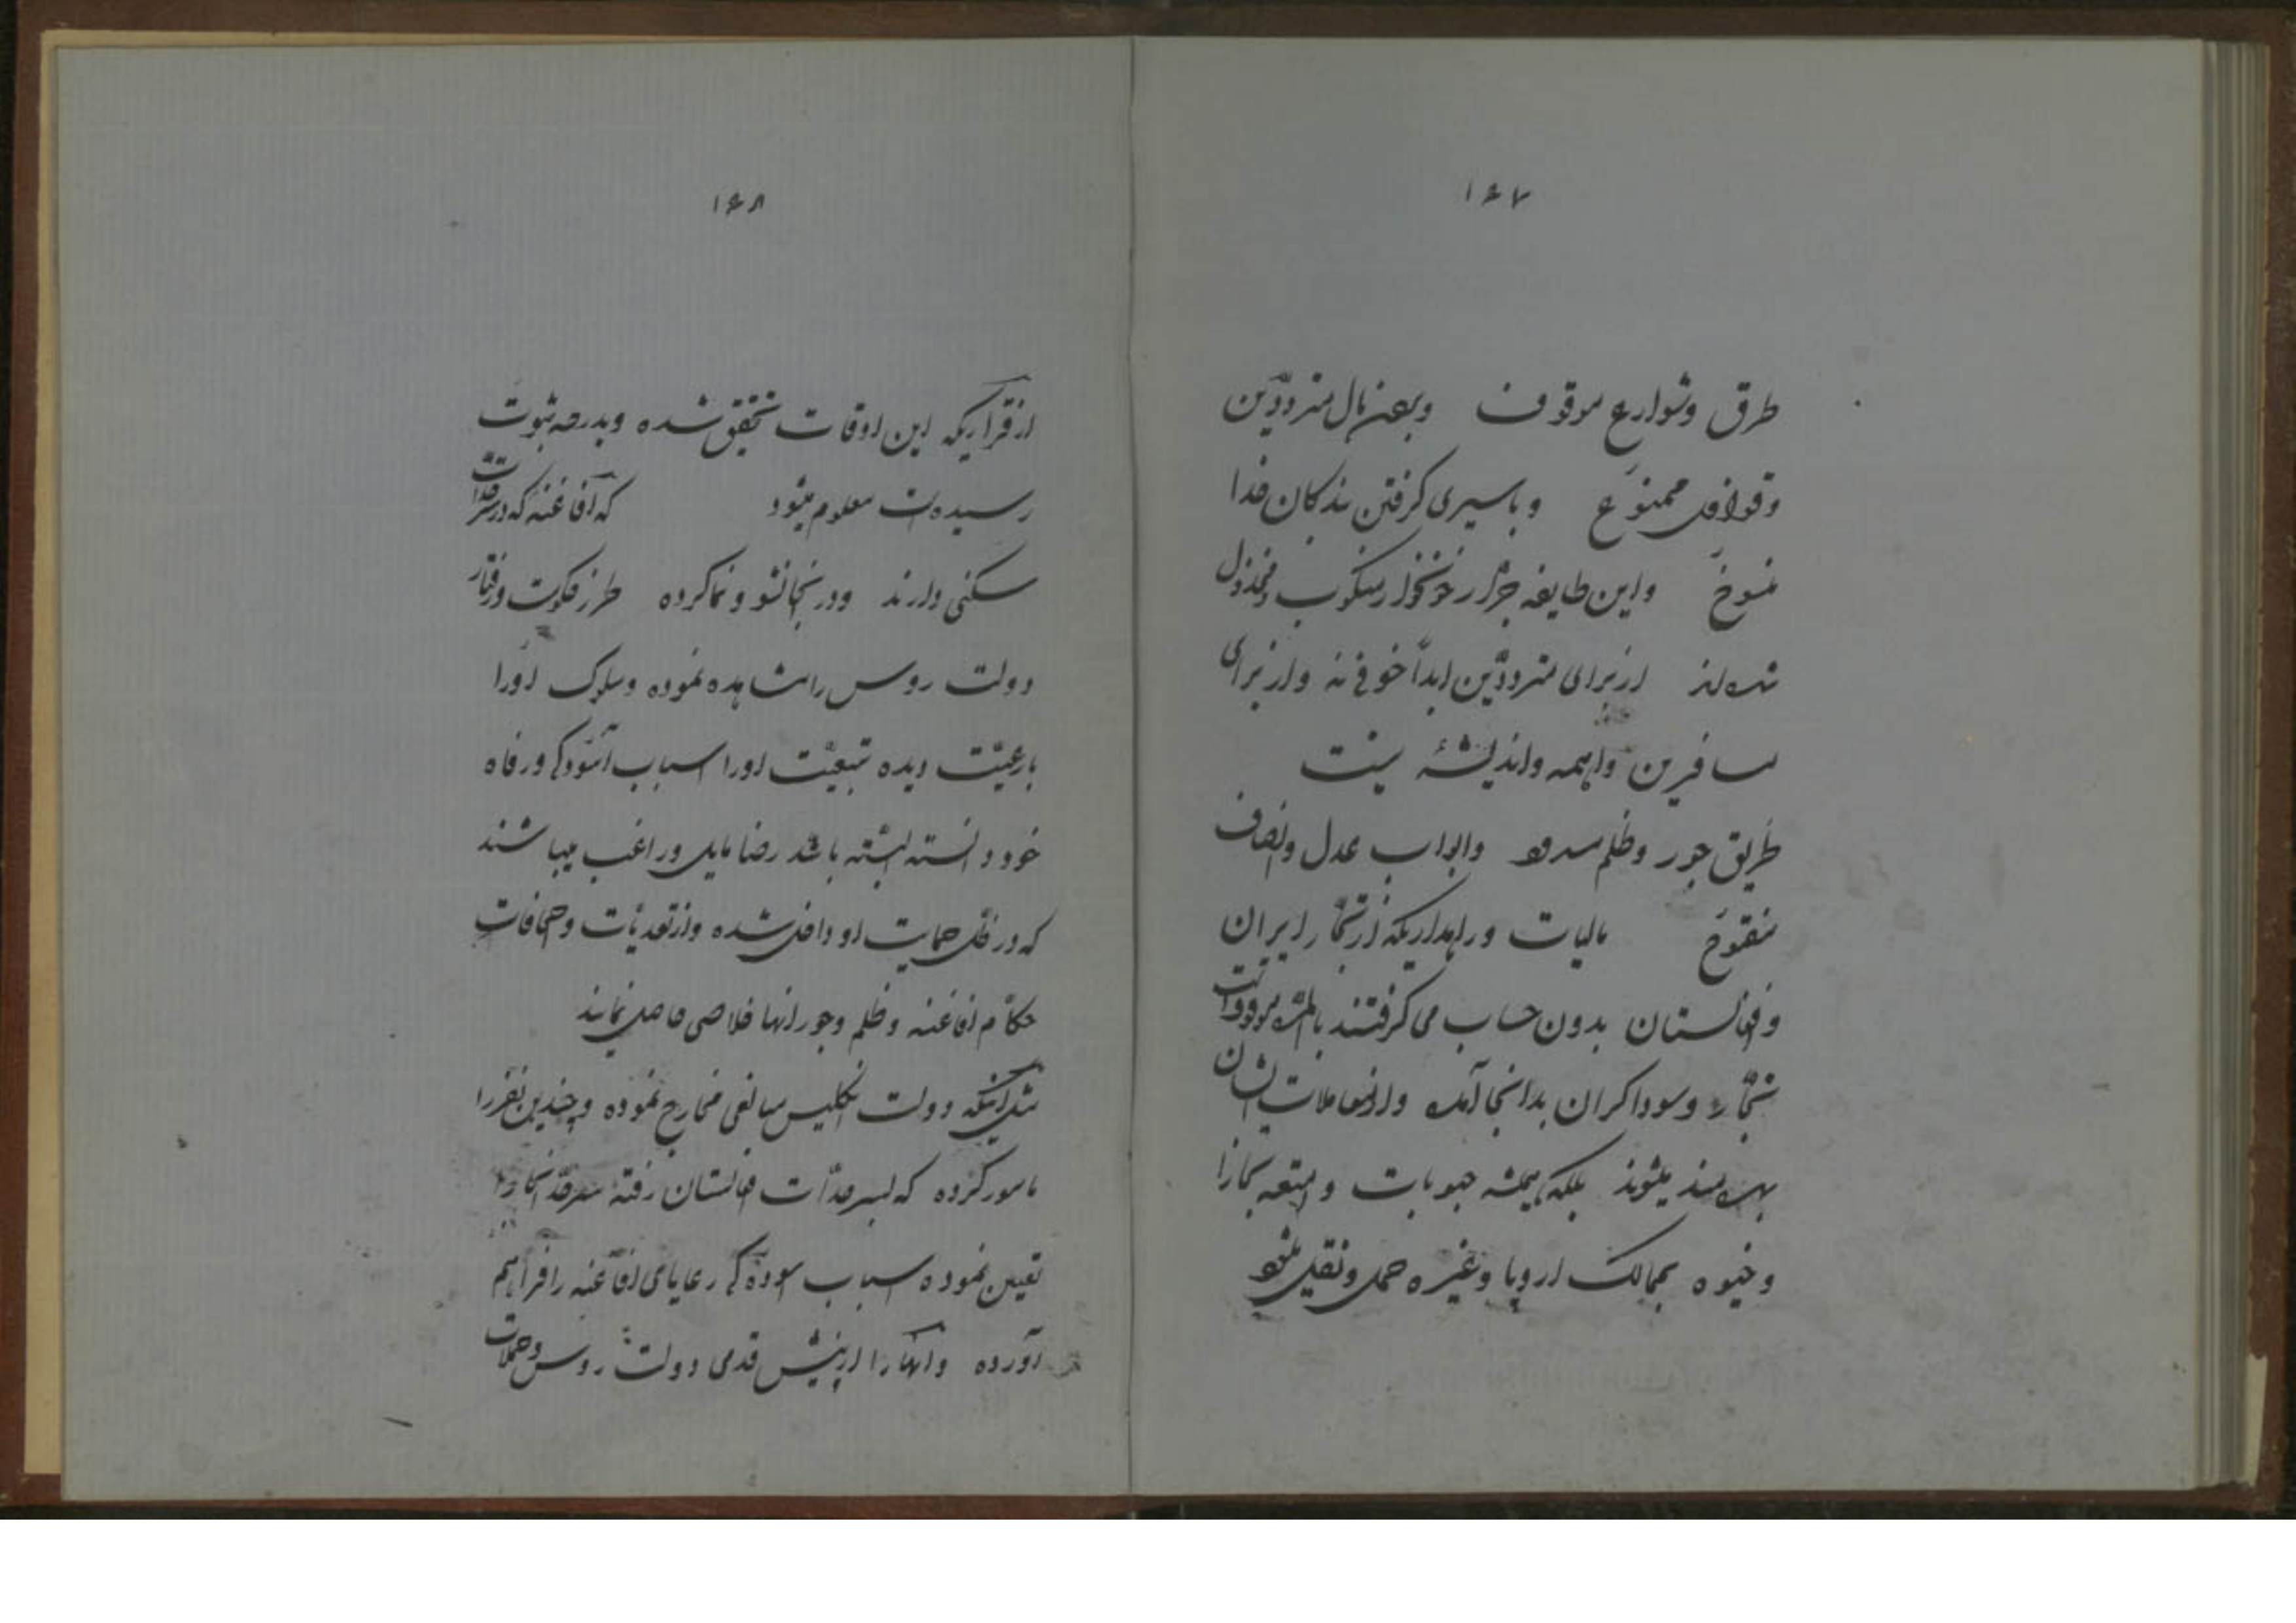 ۱۶۷
طرق و شوارع موقوف و بعض مال مترددین
و قوافل ممنوع و باسیری گرفتن بندکان خدا
منسوخ و این طایفه جرار خونخوار منکوب و مخذول
شده‌اند از برای مترددین ابداً خوفی نه و از برای
مسافرین واهمه و اندیشهٔ نیست
طریق جور و ظلم مسدود و ابواب عدل و انصاف
مفتوح مالیات و راهداریکه از تجار ایران
و افغانستان بدون حساب می گرفتند
تجار و سوداکران بدانجا آمده و از معاملات ایشان
بهره‌مند میشوند بلکه همیشه حبوبات و امتعه بخارا
و خیوه بممالک اروپا و غیره حمل و نقل میشود
۱۶۸
از قراریکه این اوقات تحقیق شده و بدرجه ثبوت
رسیده است معلوم میشود که افاغنه که در سرحدات
سکنی دارند و در آنجا نشو و نما کرده طرز حکومت و رفتار
دولت روس را مشاهده نموده و سلوک او را
با رعیت دیده تبعیت او را اسباب آسودکی و رفاه
خود دانسته البته باشد رضا مایل و راغب میباشند
که در ظل حمایت او داخل شده و از تعدیات و اجحافات
حکام افاغنه و ظلم و جور آنها خلاصی حاصل نمایند
مثل آنکه دولت انکلیس مبالغی مخارج نموده و چندین نفر را
مامور کرده که بسرحدات افغانستان رفته سرحد آنجا را
تعیین نموده اسباب آسوده‌کی رعایای افاغنه را فراهم
آورده و آنها را از پیش قدمی دولت روس و حملات